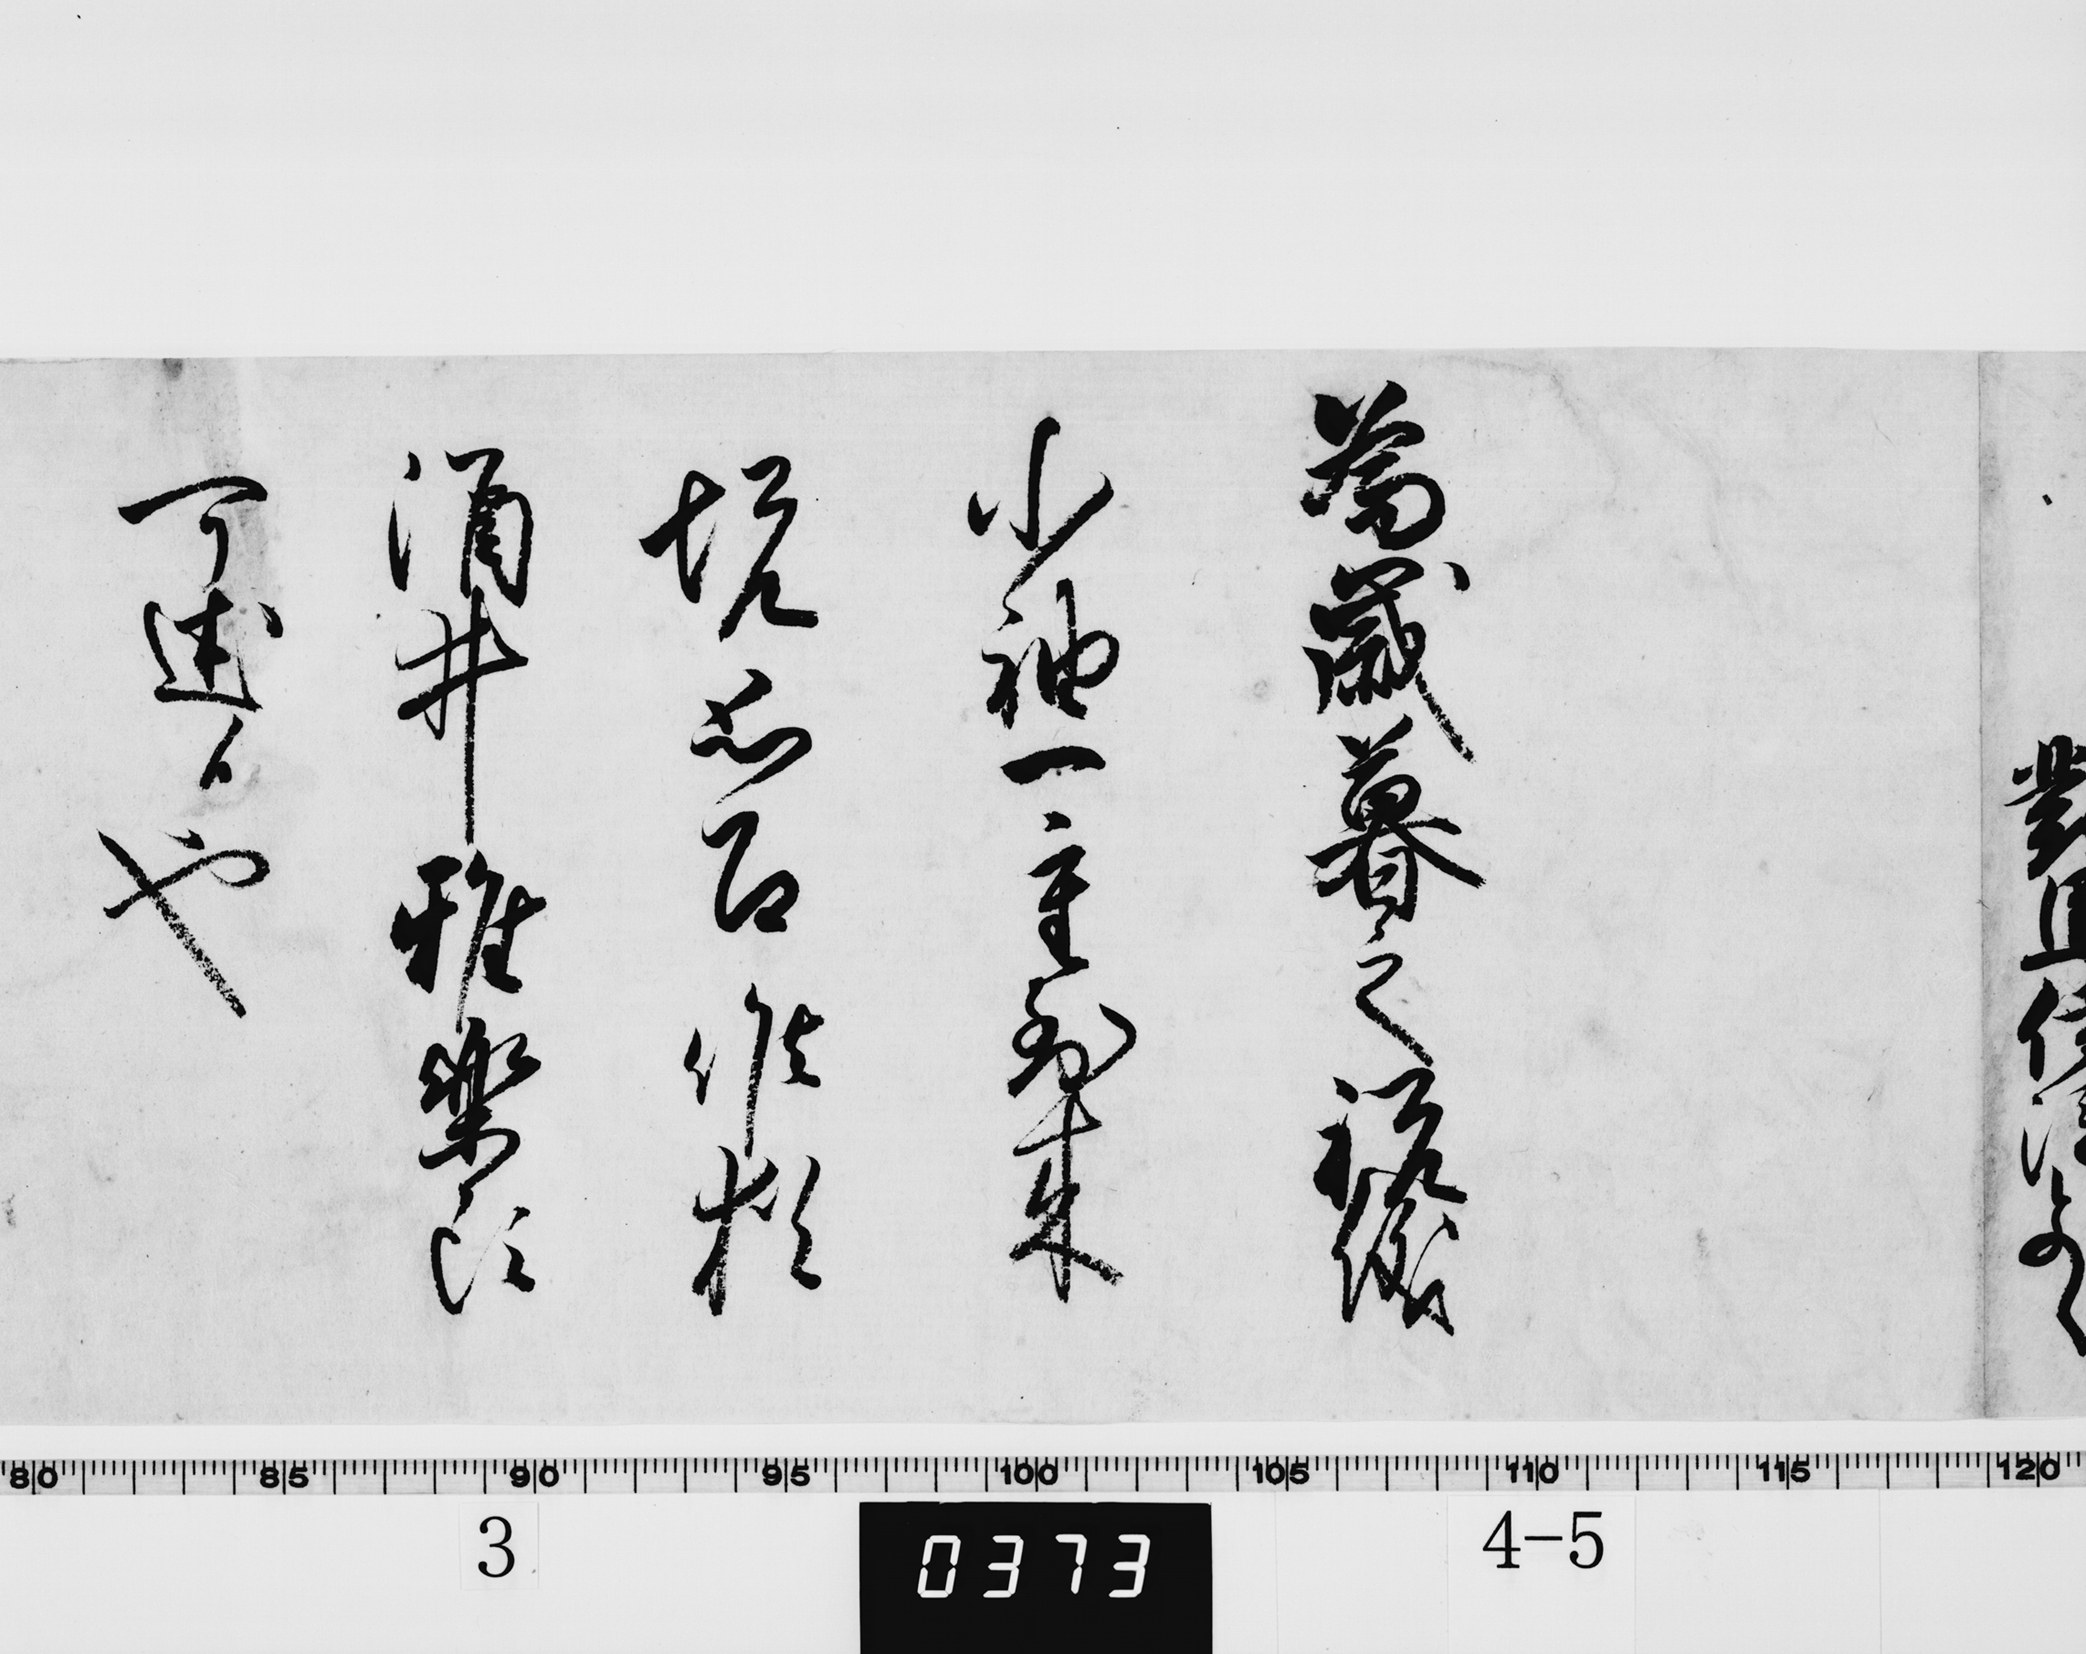 為歳暮之祝儀
小袖一重到来
悦思召候猶
酒井雅楽頭
可述候也
80 85 90 95 100 105 110 115 120
3 0373 4-5